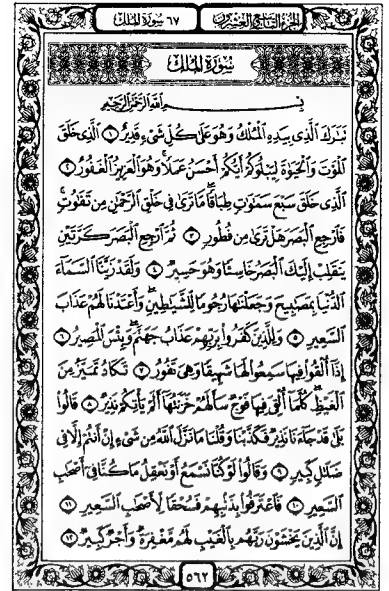 الجزء التاسع والعشرون
٦٧ سورة الملك
سورة الملك
بسم الله الرحمن الرحيم
تبرك الذي بيده الملك وهو على كل شيء قدير ١ الذي خلق
الموت والحيوة ليبلوكم أيكم أحسن عملا وهو العزيز الغفور ٢
الذي خلق سبع سموت طباقا ما ترى في خلق الرحمن من تفوت
فارجع البصر هل ترى من فطور ٣ ثم ارجع البصر كرتين
ينقلب إليك البصر خاسئا وهو حسير ٤ ولقد زينا السماء
الدنيا بمصبيح وجعلنها رجوما للشيطين وأعتدنا لهم عذاب
السعير ٥ وللذين كفروا بربهم عذاب جهنم وبئس المصير ٦
إذا ألقوا فيها سمعوا لها شهيقا وهي تفور ٧ تكاد تميز من
الغيظ كلما ألقي فيها فوج سألهم خزنتها ألم يأتكم نذير ٨ قالوا
بلى قد جاءنا نذير فكذبنا وقلنا ما نزل الله من شيء إن أنتم إلا في
ضلل كبير ٩ وقالوا لو كنا نسمع أو نعقل ما كنا في أصحب
السعير ١٠ فاعترفوا بذنبهم فسحقا لأصحب السعير ١١
إن الذين يخشون ربهم بالغيب لهم مغفرة وأجر كبير ١٢
٥٦٢